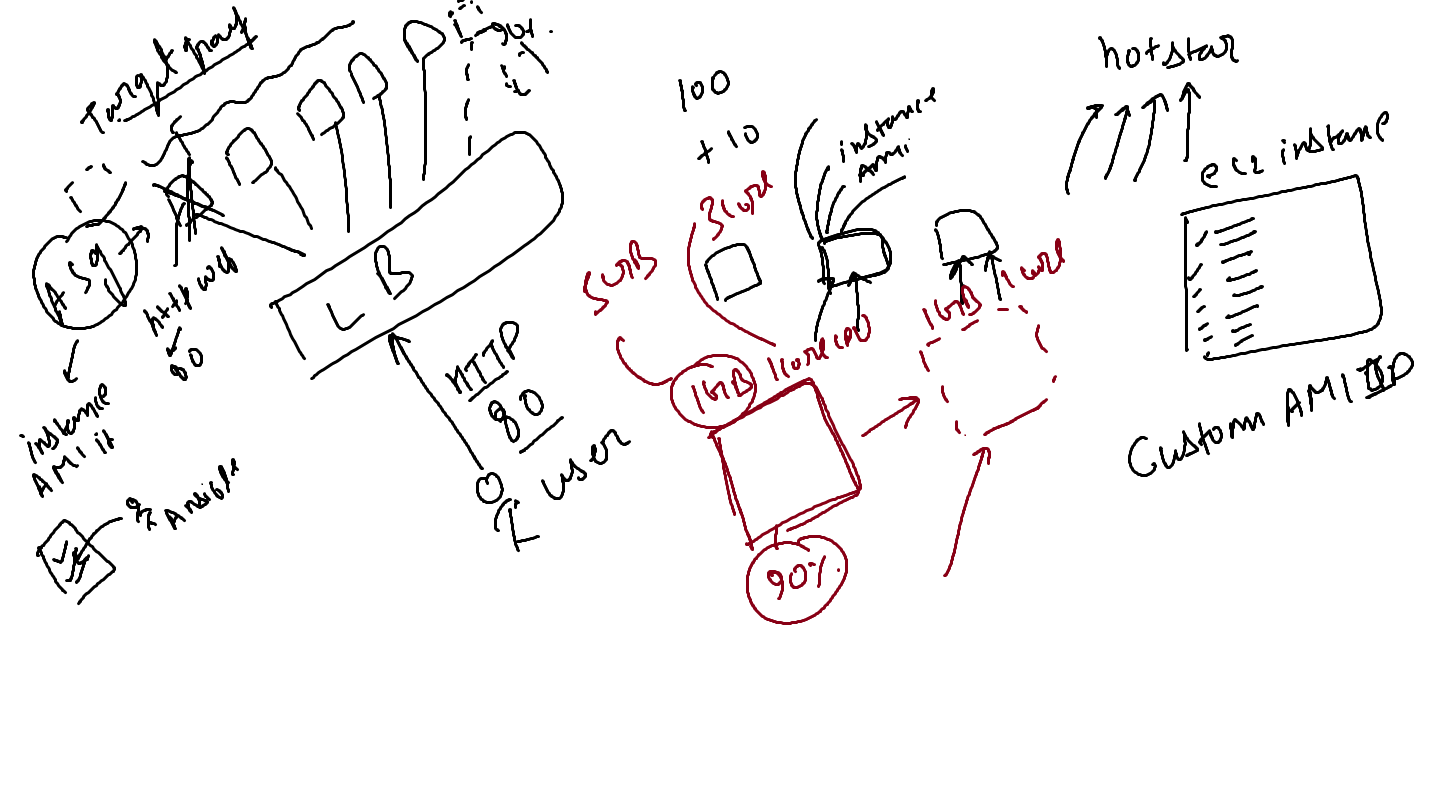 Target group
90%.
ASg
http web
80
instance
AMI it
Ansible
LB
HTTP
80
user
100
+ 10
instance
AMI
3 core
5GB
1GB
1 core CPU
90%.
1GB
1 core
hotstar
ec2 instance
Custom AMI